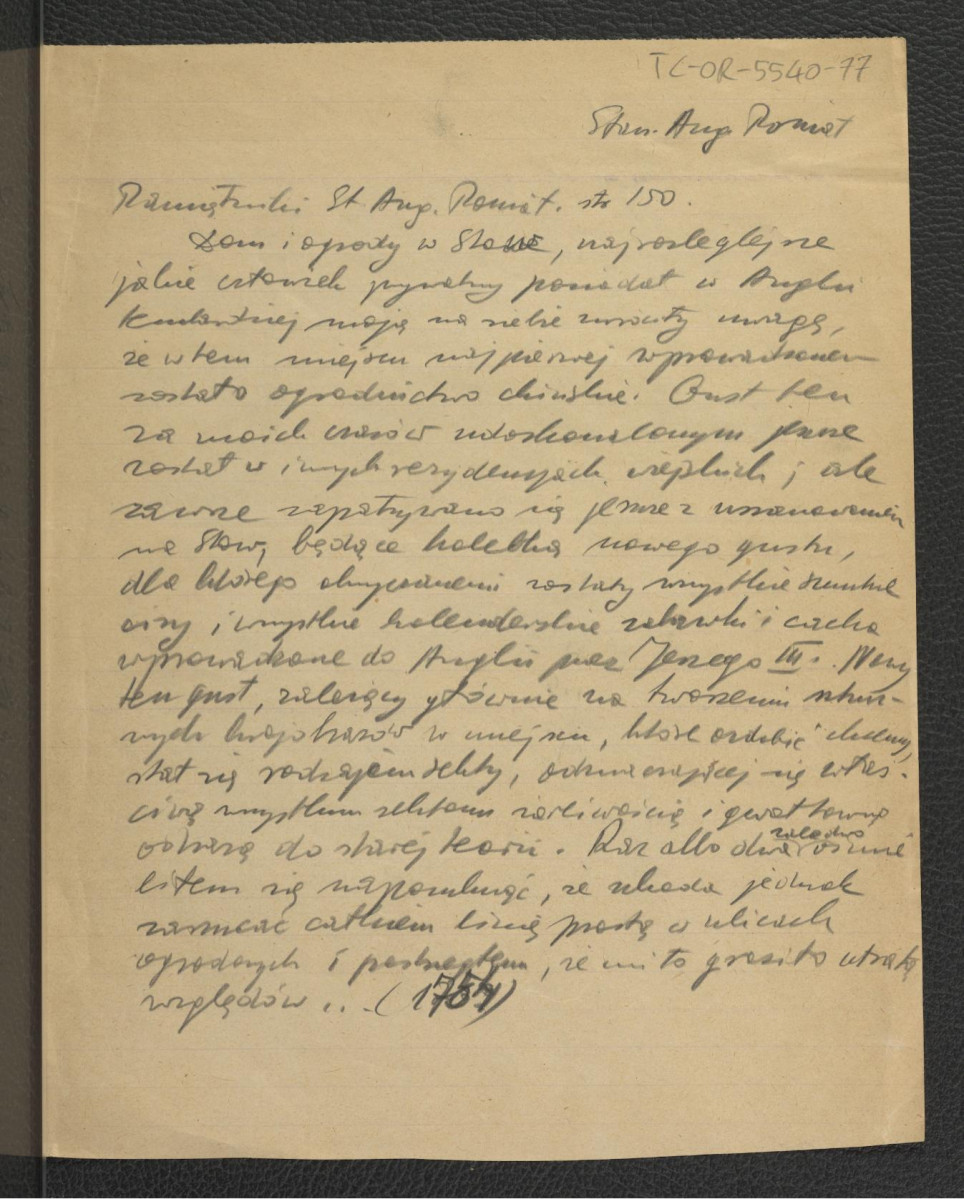 TC-OR-5540-77
Stan. Aug Poniat
Pamiętniki St. Aug. Poniat. str 150.
Dom i ogrody w Stowe, najrozleglejsze
jakie człowiek prywatny posiadał w Anglii
mają na siebie zwrócity uwagę,
że w tem miejscu najpierwej wprowadzonem
zostało ogrodnictwo chińskie. Gust ten
za moich czasów udoskonalonym jeszcze
został w innych rezydencjach wiejskich; ale
zawsze zapatrywano się jeszcze z uszanowaniem
na Stow, będące kolebką nowego gustu,
dla którego zostały wszystkie
cisy i wszystkie holenderskie zabawki i cacka
wprowadzone do Anglii przez Jerzego III. Nowy
ten gust, zależący głównie na tworzeniu sztucz-
nych krajobrazów w miejscu, które ozdobić chcemy,
stał się rodzajem sekty, odznaczającej się właś-
ciwą wszystkim sektom żarliwością i gwałtowną
odrazą do starej teorii. Raz albo dwa zaledwo ośmie
liłem się napomknąć, że szkoda jednak
zarzucać całkiem linię prostą w ulicach
ogrodowych i postrzegłem, że mi to groziło utratą
względów ... (1754)